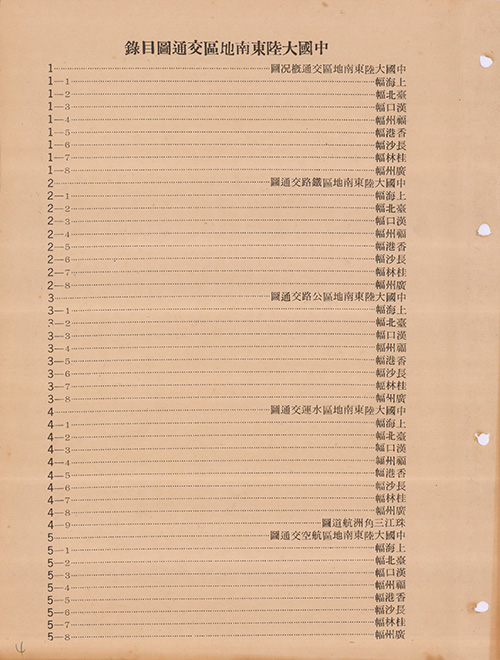 中國大陸東南地區交通圖目錄
中國大陸東南地區交通概况圖 1
上海幅 1—1
臺北幅 1—2
漢口幅 1—3
福州幅 1—4
香港幅 1—5
長沙幅 1—6
桂林幅 1—7
廣州幅 1—8
中國大陸東南地區鐵路交通圖 2
上海幅 2—1
臺北幅 2—2
漢口幅 2—3
福州幅 2—4
香港幅 2—5
長沙幅 2—6
桂林幅 2—7
廣州幅 2—8
中國大陸東南地區公路交通圖 3
上海幅 3—1
臺北幅 3—2
漢口幅 3—3
福州幅 3—4
香港幅 3—5
長沙幅 3—6
桂林幅 3—7
廣州幅 3—8
中國大陸東南地區水運交通圖 4
上海幅 4—1
臺北幅 4—2
漢口幅 4—3
福州幅 4—4
香港幅 4—5
長沙幅 4—6
桂林幅 4—7
廣州幅 4—8
珠江三角洲航道圖 4—9
中國大陸東南地區航空交通圖 5
上海幅 5—1
臺北幅 5—2
漢口幅 5—3
福州幅 5—4
香港幅 5—5
長沙幅 5—6
桂林幅 5—7
廣州幅 5—8
4